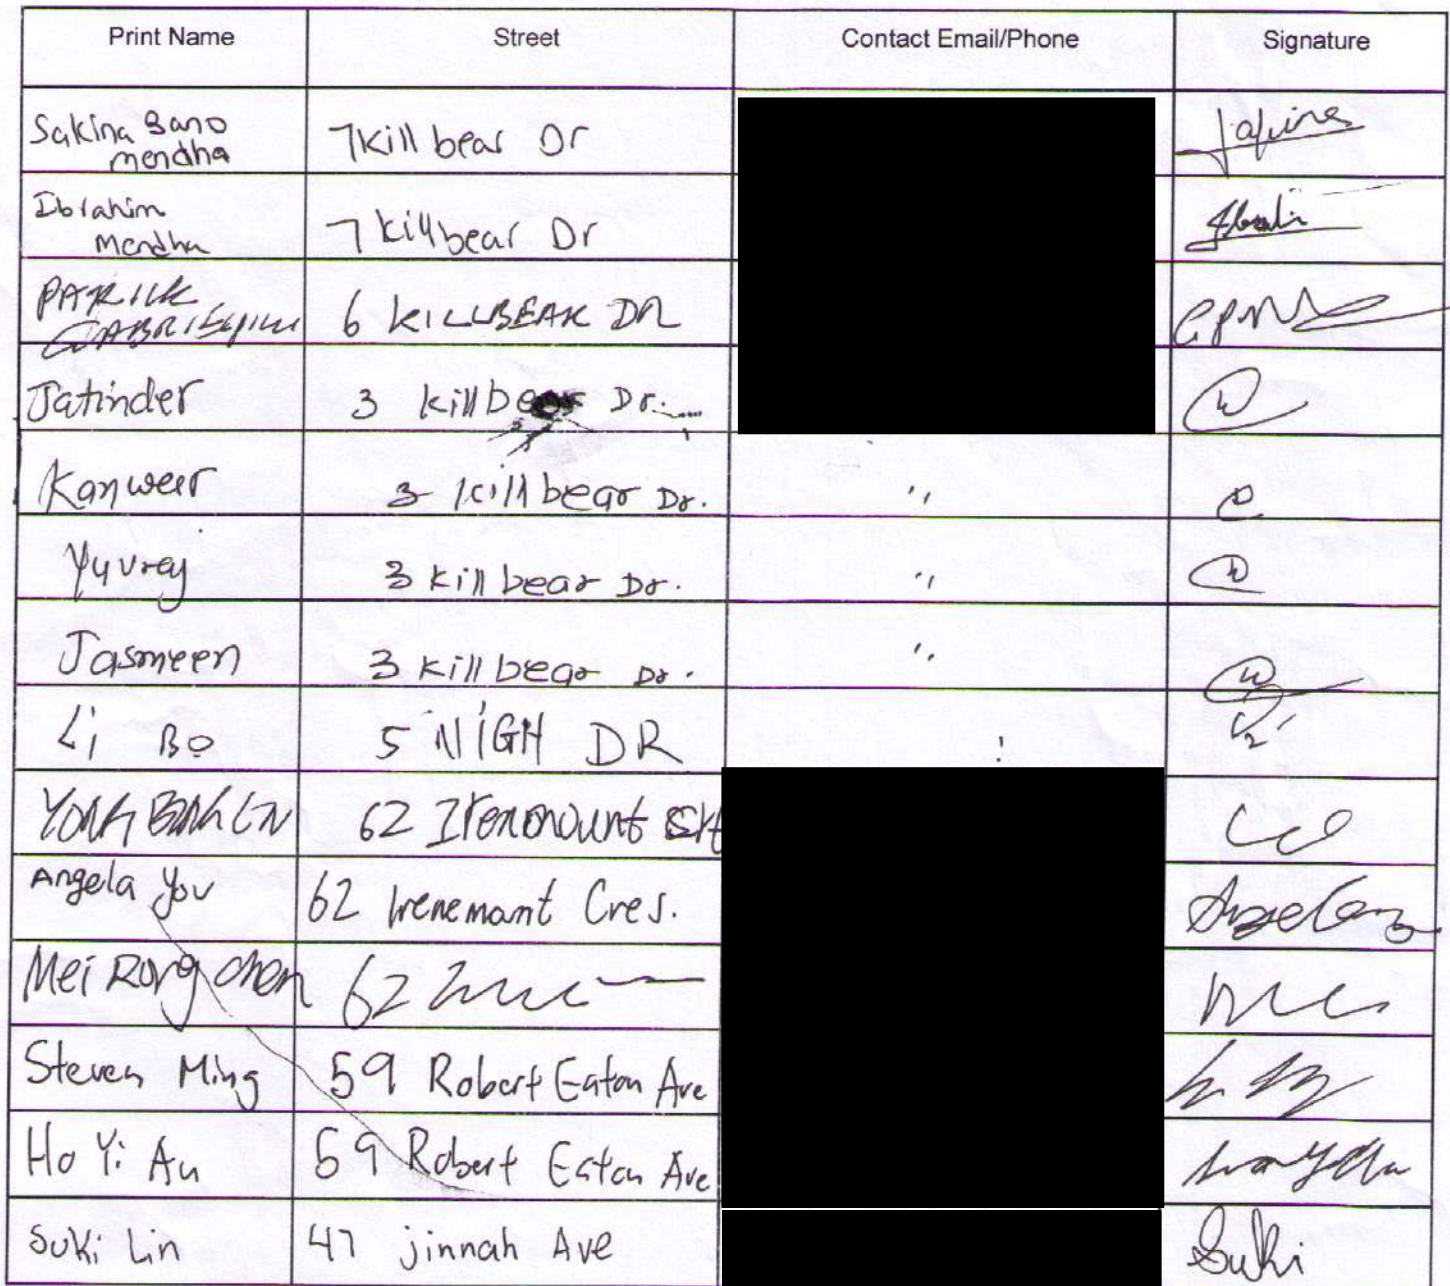 Print Name Street Contact Email/Phone Signature
Sakina Bano
mendha 7 killbear Dr
Ibrahim
mendha 7 killbear Dr
PATRICK
6 KILLBEAR DR
Jatinder 3 killbear Dr.
Kanweer 3 killbear Dr. ''
Yuvraj 3 killbear Dr. ''
Jasmeen 3 killbear Dr. ''
Li Bo 5 NIGH DR
62 Irenemount
Angela You 62 Irenemant Cres.
Mei Rong chen 62
Steven Ming 59 Robert Eaton Ave
Ho Yi Au 59 Robert Eaton Ave
Suki Lin 47 jinnah Ave Suki